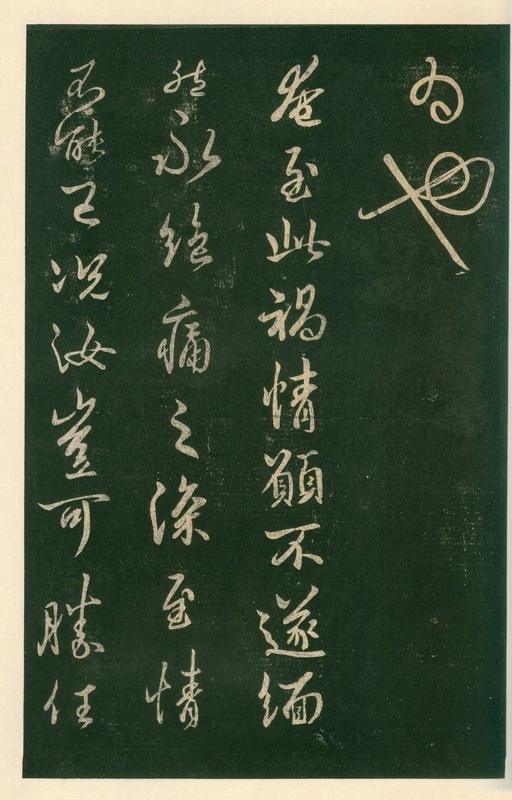 為也
奄至此禍情願不遂緬
然永絕痛之深至情
不能已況汝豈可勝任